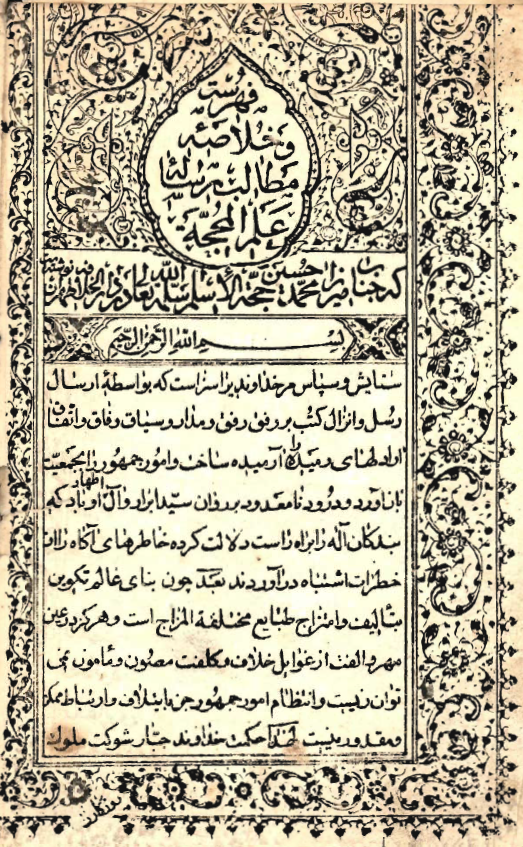 فهرست
و خلاصه
مطالب رساله
علم المحجّة
که جناب میرزا محمد حسین حجة الاسلام سلمه الله تعالی در دار الخلافه طهران نوشته
بسم الله الرحمن الرحیم
ستایش و سپاس مر خداوندیرا سزاست که بواسطهٔ ارسال
رسل و انزال کتب بر رفق رفق و مدار و سیاق وفاق و اتفاق
دلهای رمیده را آرمیده ساخت و امور جمهور را بجمعیت
باز آورد و درود نامعدود بر روان سید ابرار و آل اطهار او باد که
بندکان آله را براه راست دلالت کرده خاطرهای آکاه را از
خطرات اشتباه در آوردند بعد چون بنای عالم تکوین
بتألیف و امتزاج طبایع مختلفة المزاج است و هرکز در عین
مهر و الفت از غوایل خلاف و کلفت مصئون و مأمون نمی
توان زیست و انتظام امور جمهور جز بایتلاف و ارتباط ممکن
و مقدور نیست لهذا حکمت خداوند جبار شوکت ملوک